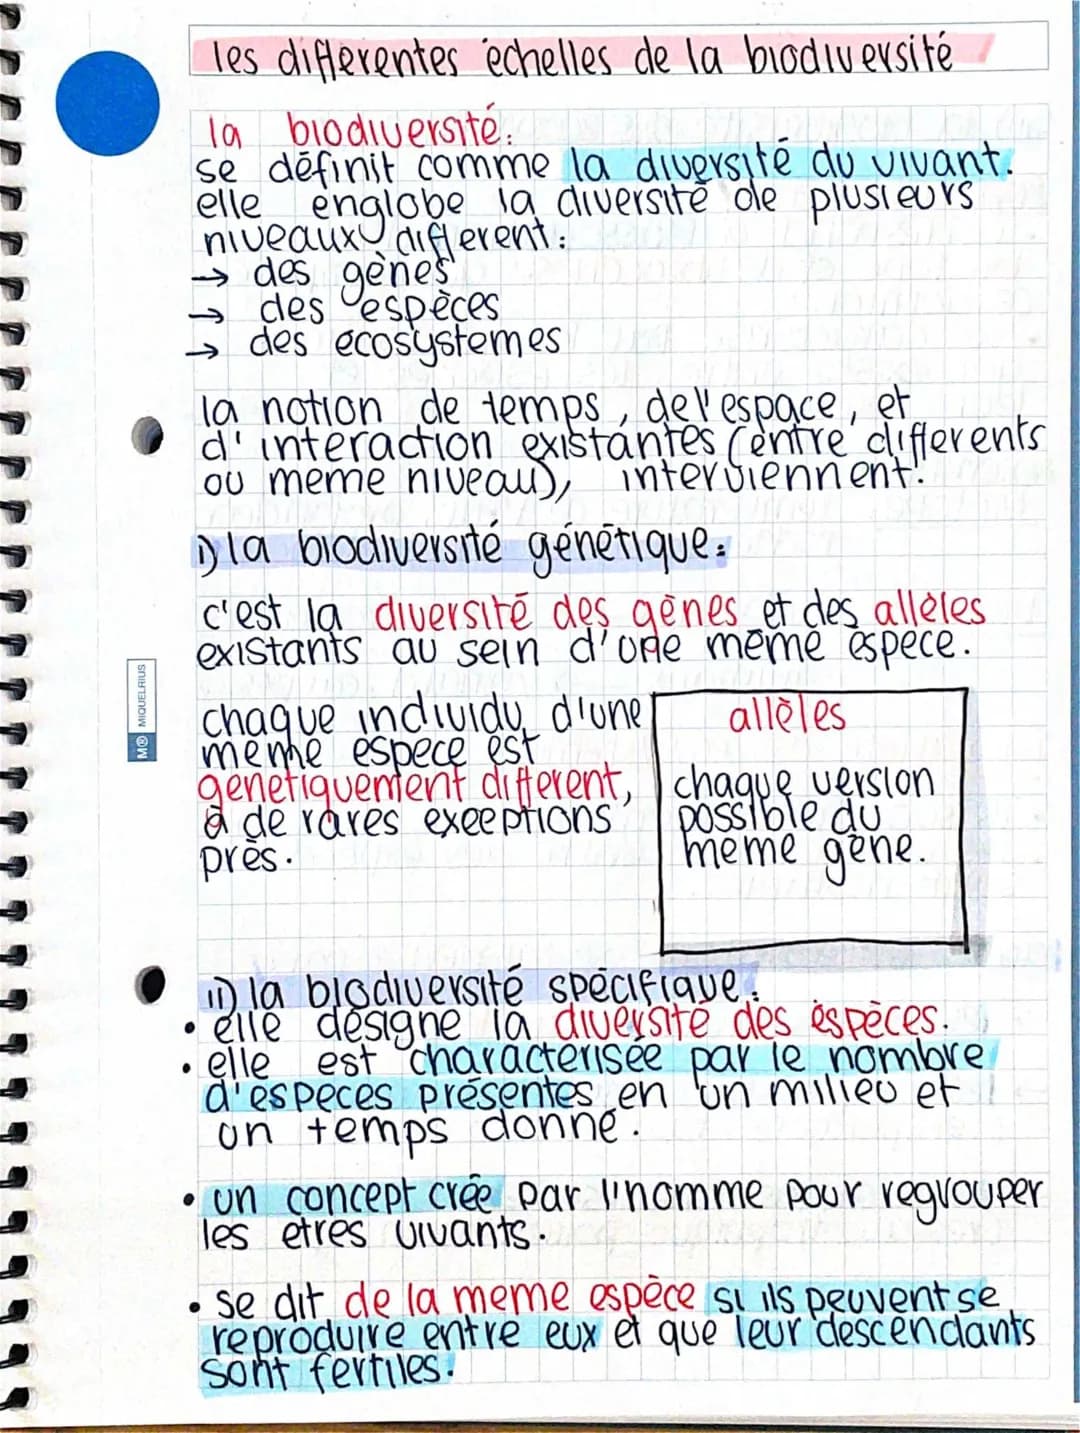 les differentes échelles de la biodiversité
la biodiversité:
se définit comme la diversité du vivant.
elle englobe la diversité de plusieurs
niveaux different:
→ des gènes
→ des espèces
→ des écosystemes
la notion de temps, de l'espace, et
d'interaction existantes (entre differents
ou meme niveau), interviennent.
i) la biodiversité génétique:
c'est la diversité des gènes et des allèles
existants au sein d'une même espece.
chaque individu d'une
meme espece est
genetiquement different,
à de rares exeeptions
près.
allèles
chaque version
possible du
meme gène.
MIQUELRIUS
ii) la biodiversité spécifique:
• elle désigne la diversité des espèces.
• elle est characterisée par le nombre
d'especes présentes en un milieu et
un temps donné.
• un concept crée par l'homme pour regrouper
les etres vivants.
• se dit de la meme espèce si ils peuvent se
reproduire entre eux et que leur descendants
sont fertiles.